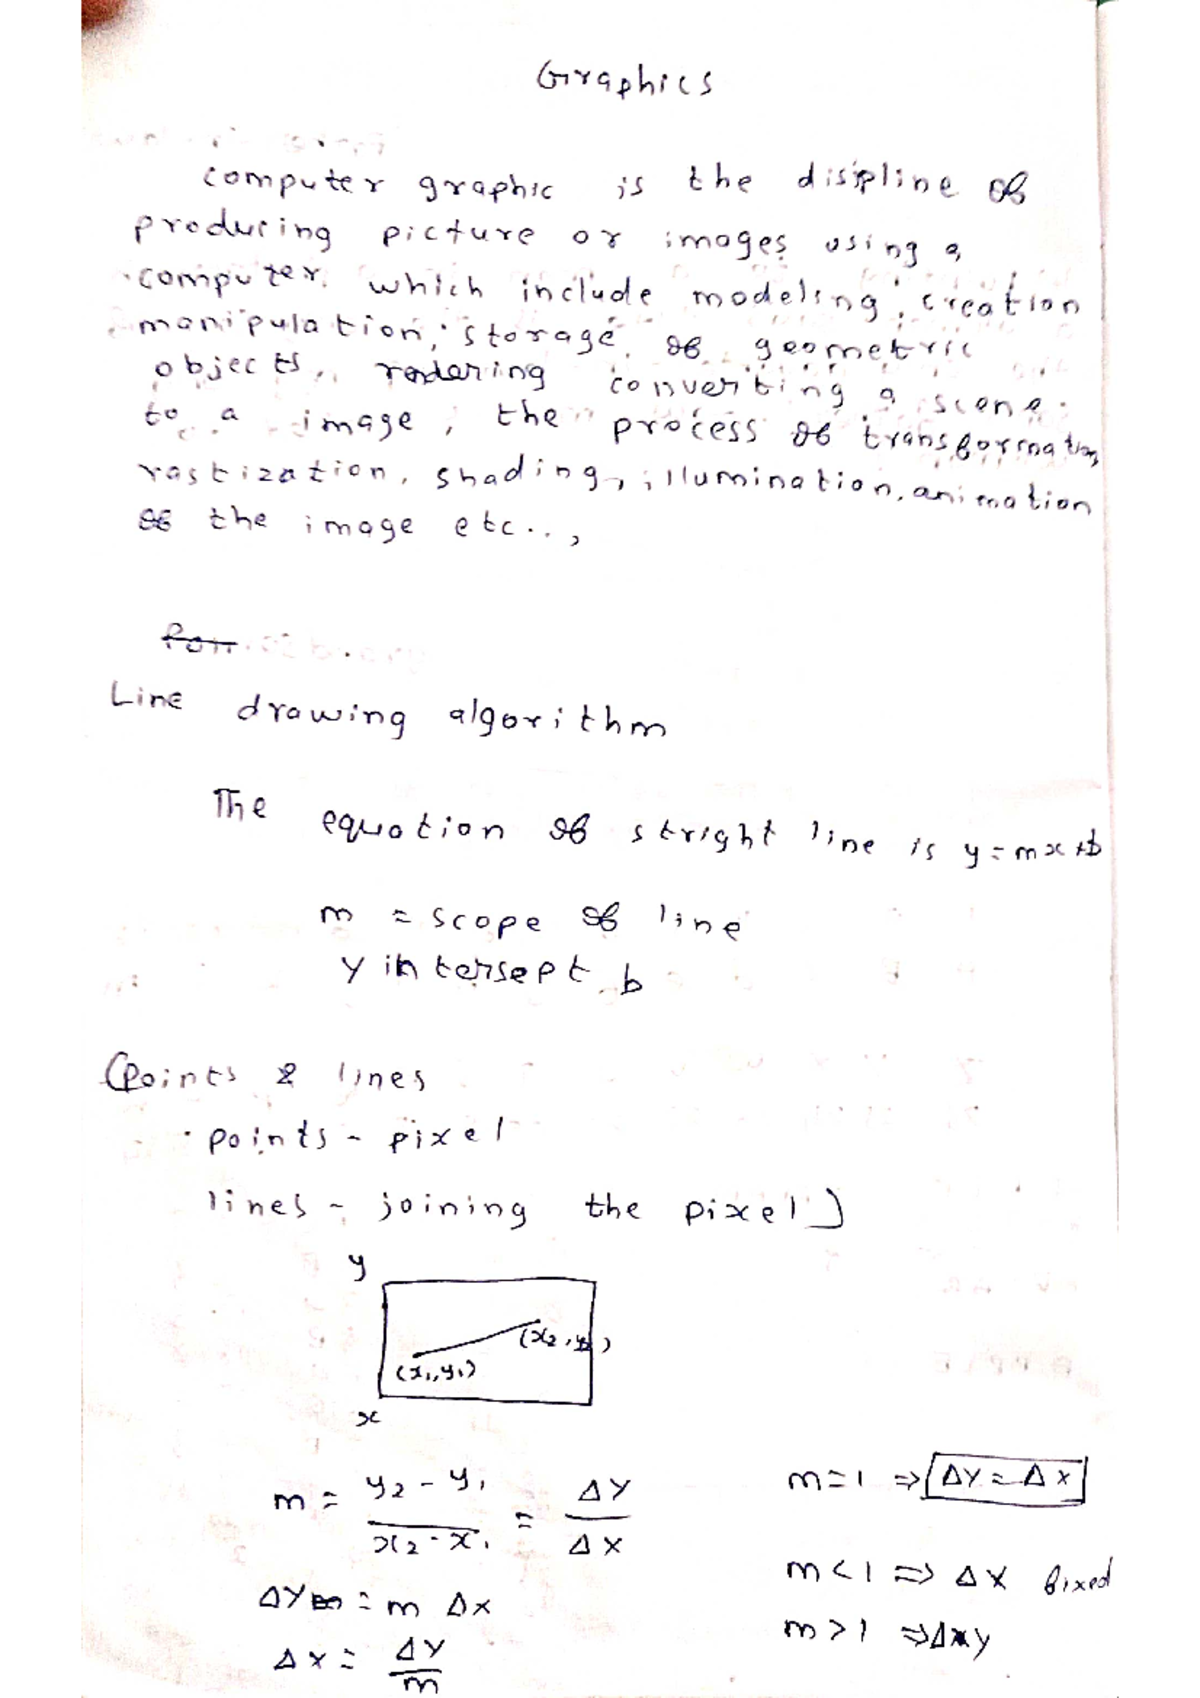 Graphics
computer graphic is the disipline of
producing picture or images using a
computer. which include modeling, creation
manipulation, storage of geometric
objects, rendering converiting a scene
to a image, the process of transformation
rastization, shading, illumination, animation
of the image etc..,
Line drawing algorithm
The equation of stright line is y = mx + b
m = scope of line
y intersept b
(Points & lines
points - pixel
lines - joining the pixel)
y
(x2, y2)
(x1, y1)
x
m = y2 - y1 / x2 - x1 = ΔY / ΔX
m = 1 ⇒ ΔY = ΔX
ΔY = m ΔX
m < 1 ⇒ ΔX fixed
ΔX = ΔY / m
m > 1 ⇒ Δy